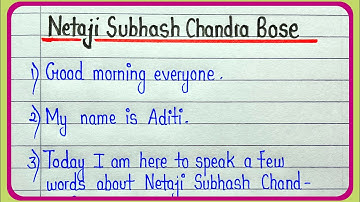 Netaji Subhash Chandra Bose
1) Good morning everyone.
2) My name is Aditi.
3) Today I am here to speak a few
words about Netaji Subhash Chand-